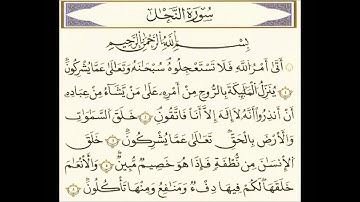 سُورَةُ النَّحْلِ
بِسْمِ اللَّهِ الرَّحْمَٰنِ الرَّحِيمِ
أَتَىٰ أَمْرُ اللَّهِ فَلَا تَسْتَعْجِلُوهُ سُبْحَانَهُ وَتَعَالَىٰ عَمَّا يُشْرِكُونَ
١ يُنَزِّلُ الْمَلَائِكَةَ بِالرُّوحِ مِنْ أَمْرِهِ عَلَىٰ مَنْ يَشَاءُ مِنْ عِبَادِهِ
أَنْ أَنْذِرُوا أَنَّهُ لَا إِلَٰهَ إِلَّا أَنَا فَاتَّقُونِ ٢ خَلَقَ السَّمَاوَاتِ
وَالْأَرْضَ بِالْحَقِّ تَعَالَىٰ عَمَّا يُشْرِكُونَ ٣ خَلَقَ
الْإِنْسَانَ مِنْ نُطْفَةٍ فَإِذَا هُوَ خَصِيمٌ مُبِينٌ ٤ وَالْأَنْعَامَ
خَلَقَهَا لَكُمْ فِيهَا دِفْءٌ وَمَنَافِعُ وَمِنْهَا تَأْكُلُونَ ٥